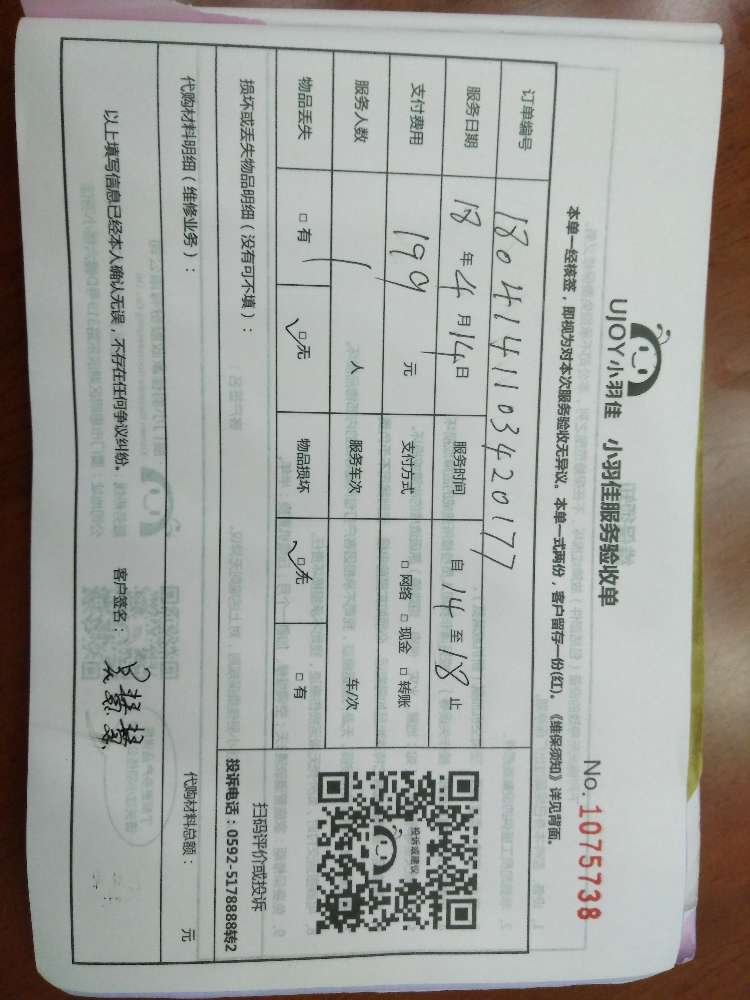 UJOY小羽佳 小羽佳服务验收单
No. 1075738
本单一经核签，即视为对本次服务验收无异议。本单一式两份，客户留存一份(红)。《维保须知》详见背面。
订单编号 1804141103420177
服务日期 18年4月14日 服务时间 自14至18止
支付费用 199元 支付方式 □网络 □现金 □转账
服务人数 1人 服务车次 车/次
物品丢失 □有 ☑无 物品损坏 ☑无 □有
损坏或丢失物品明细（没有可不填）：
代购材料明细（维修业务）：
代购材料总额： 元
以上填写信息已经本人确认无误，不存在任何争议纠纷。 客户签名：
投诉或建议
扫码评价或投诉
投诉电话：0592-5178888转2